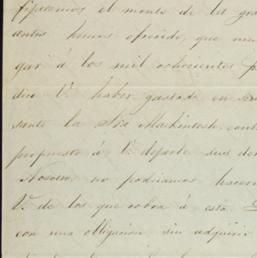 fijasemos el monto de la gra
antes hemos ofrecido, que
gar á los mil ochocientos p
dice V. haber gastado en
sante la Sra Mackintosh, cont
propuesto á V. dejarle sus der
Nosotros no podriamos hacern
V. de los que cobra á esta
con una obligacion sin adquirir